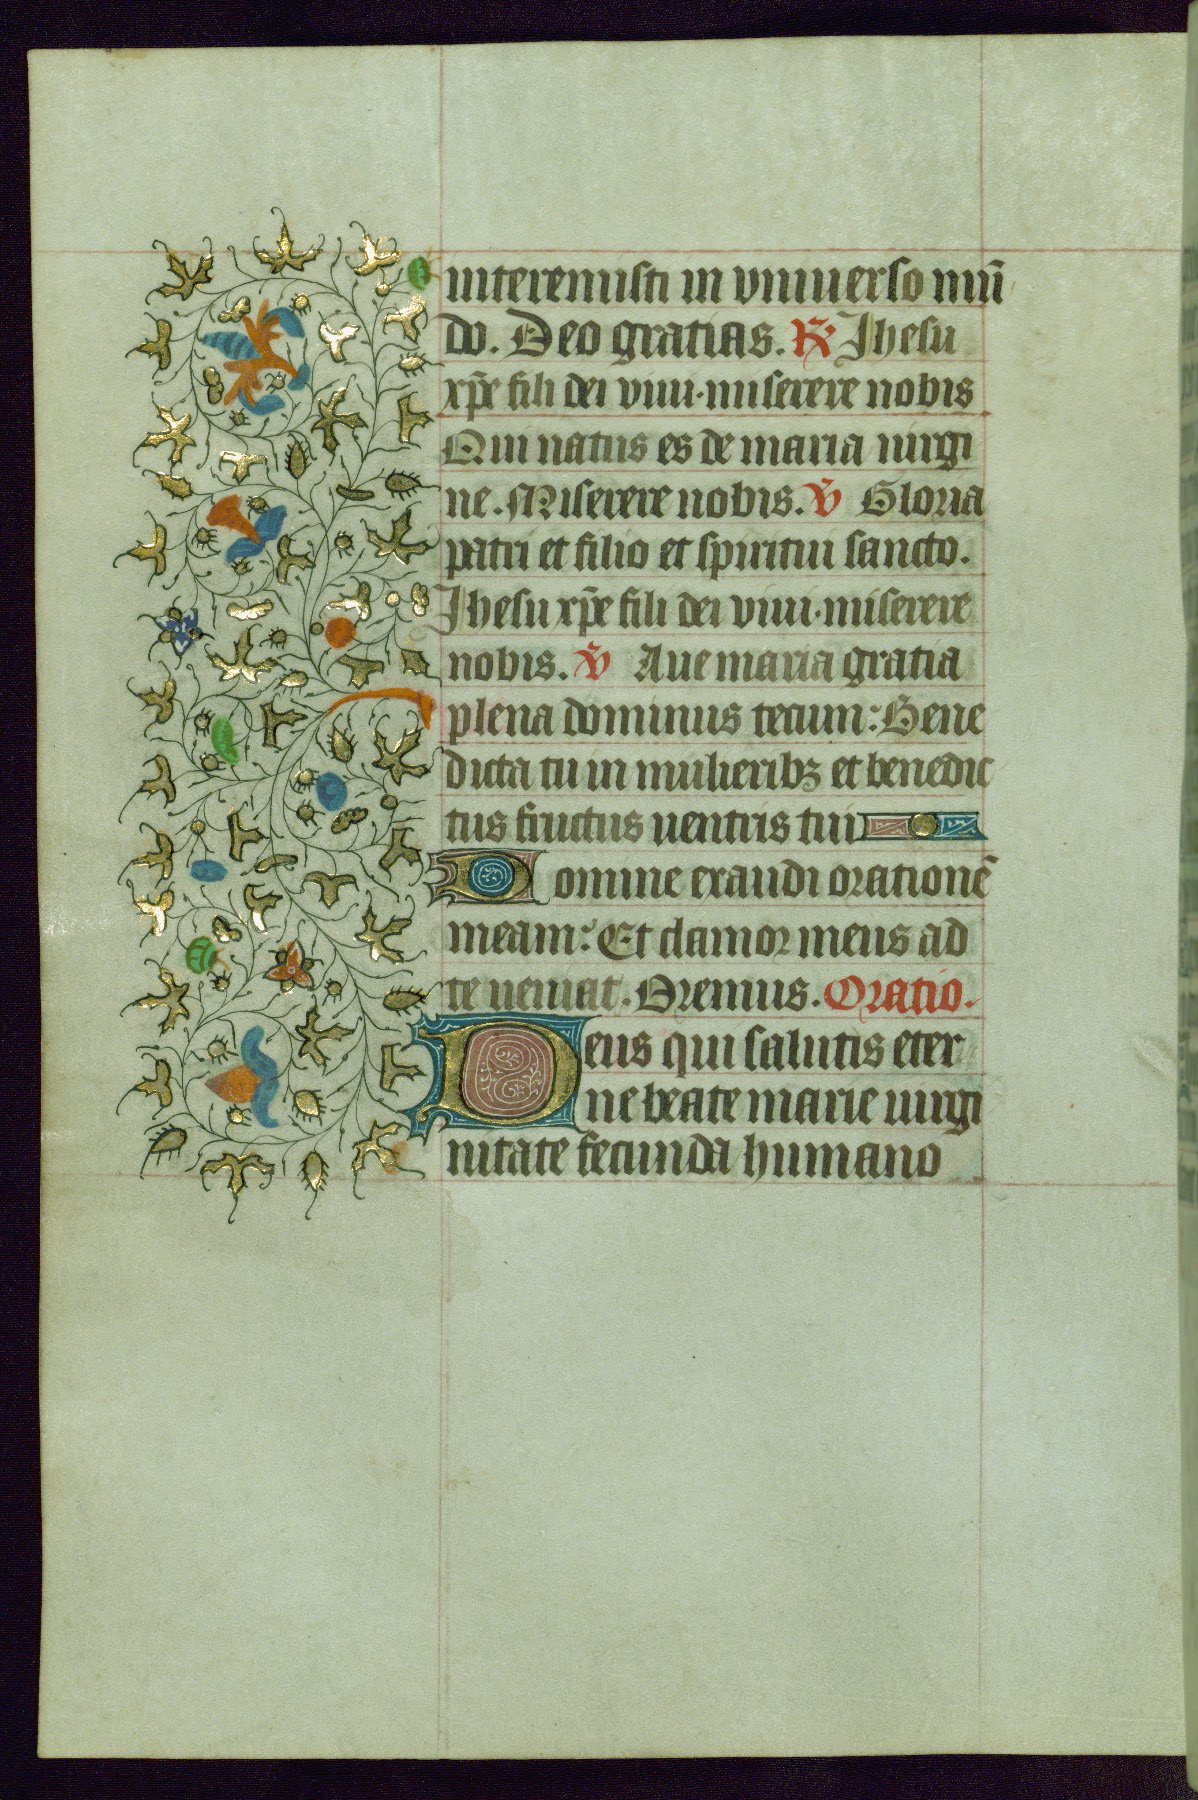 interemisti in vniuerso mū
do. Deo gratias. ℟ Jhesu
xp̄e fili dei viui·miserere nobis
Qui natus es de maria uirgi
ne. Miserere nobis. ℣ Gloria
patri et filio et spiritui sancto.
Jhesu xp̄e fili dei viui·miserere
nobis. ℣ Aue maria gratia
plena dominus tecum: Bene
dicta tu in mulieribꝫ et benedic
tus fructus uentris tui
Domine exaudi orationē
meam: Et clamor meus ad
te ueniat. Oremus. Oratio.
Deus qui salutis eter
ne beate marie uirgi
nitate fecunda humano